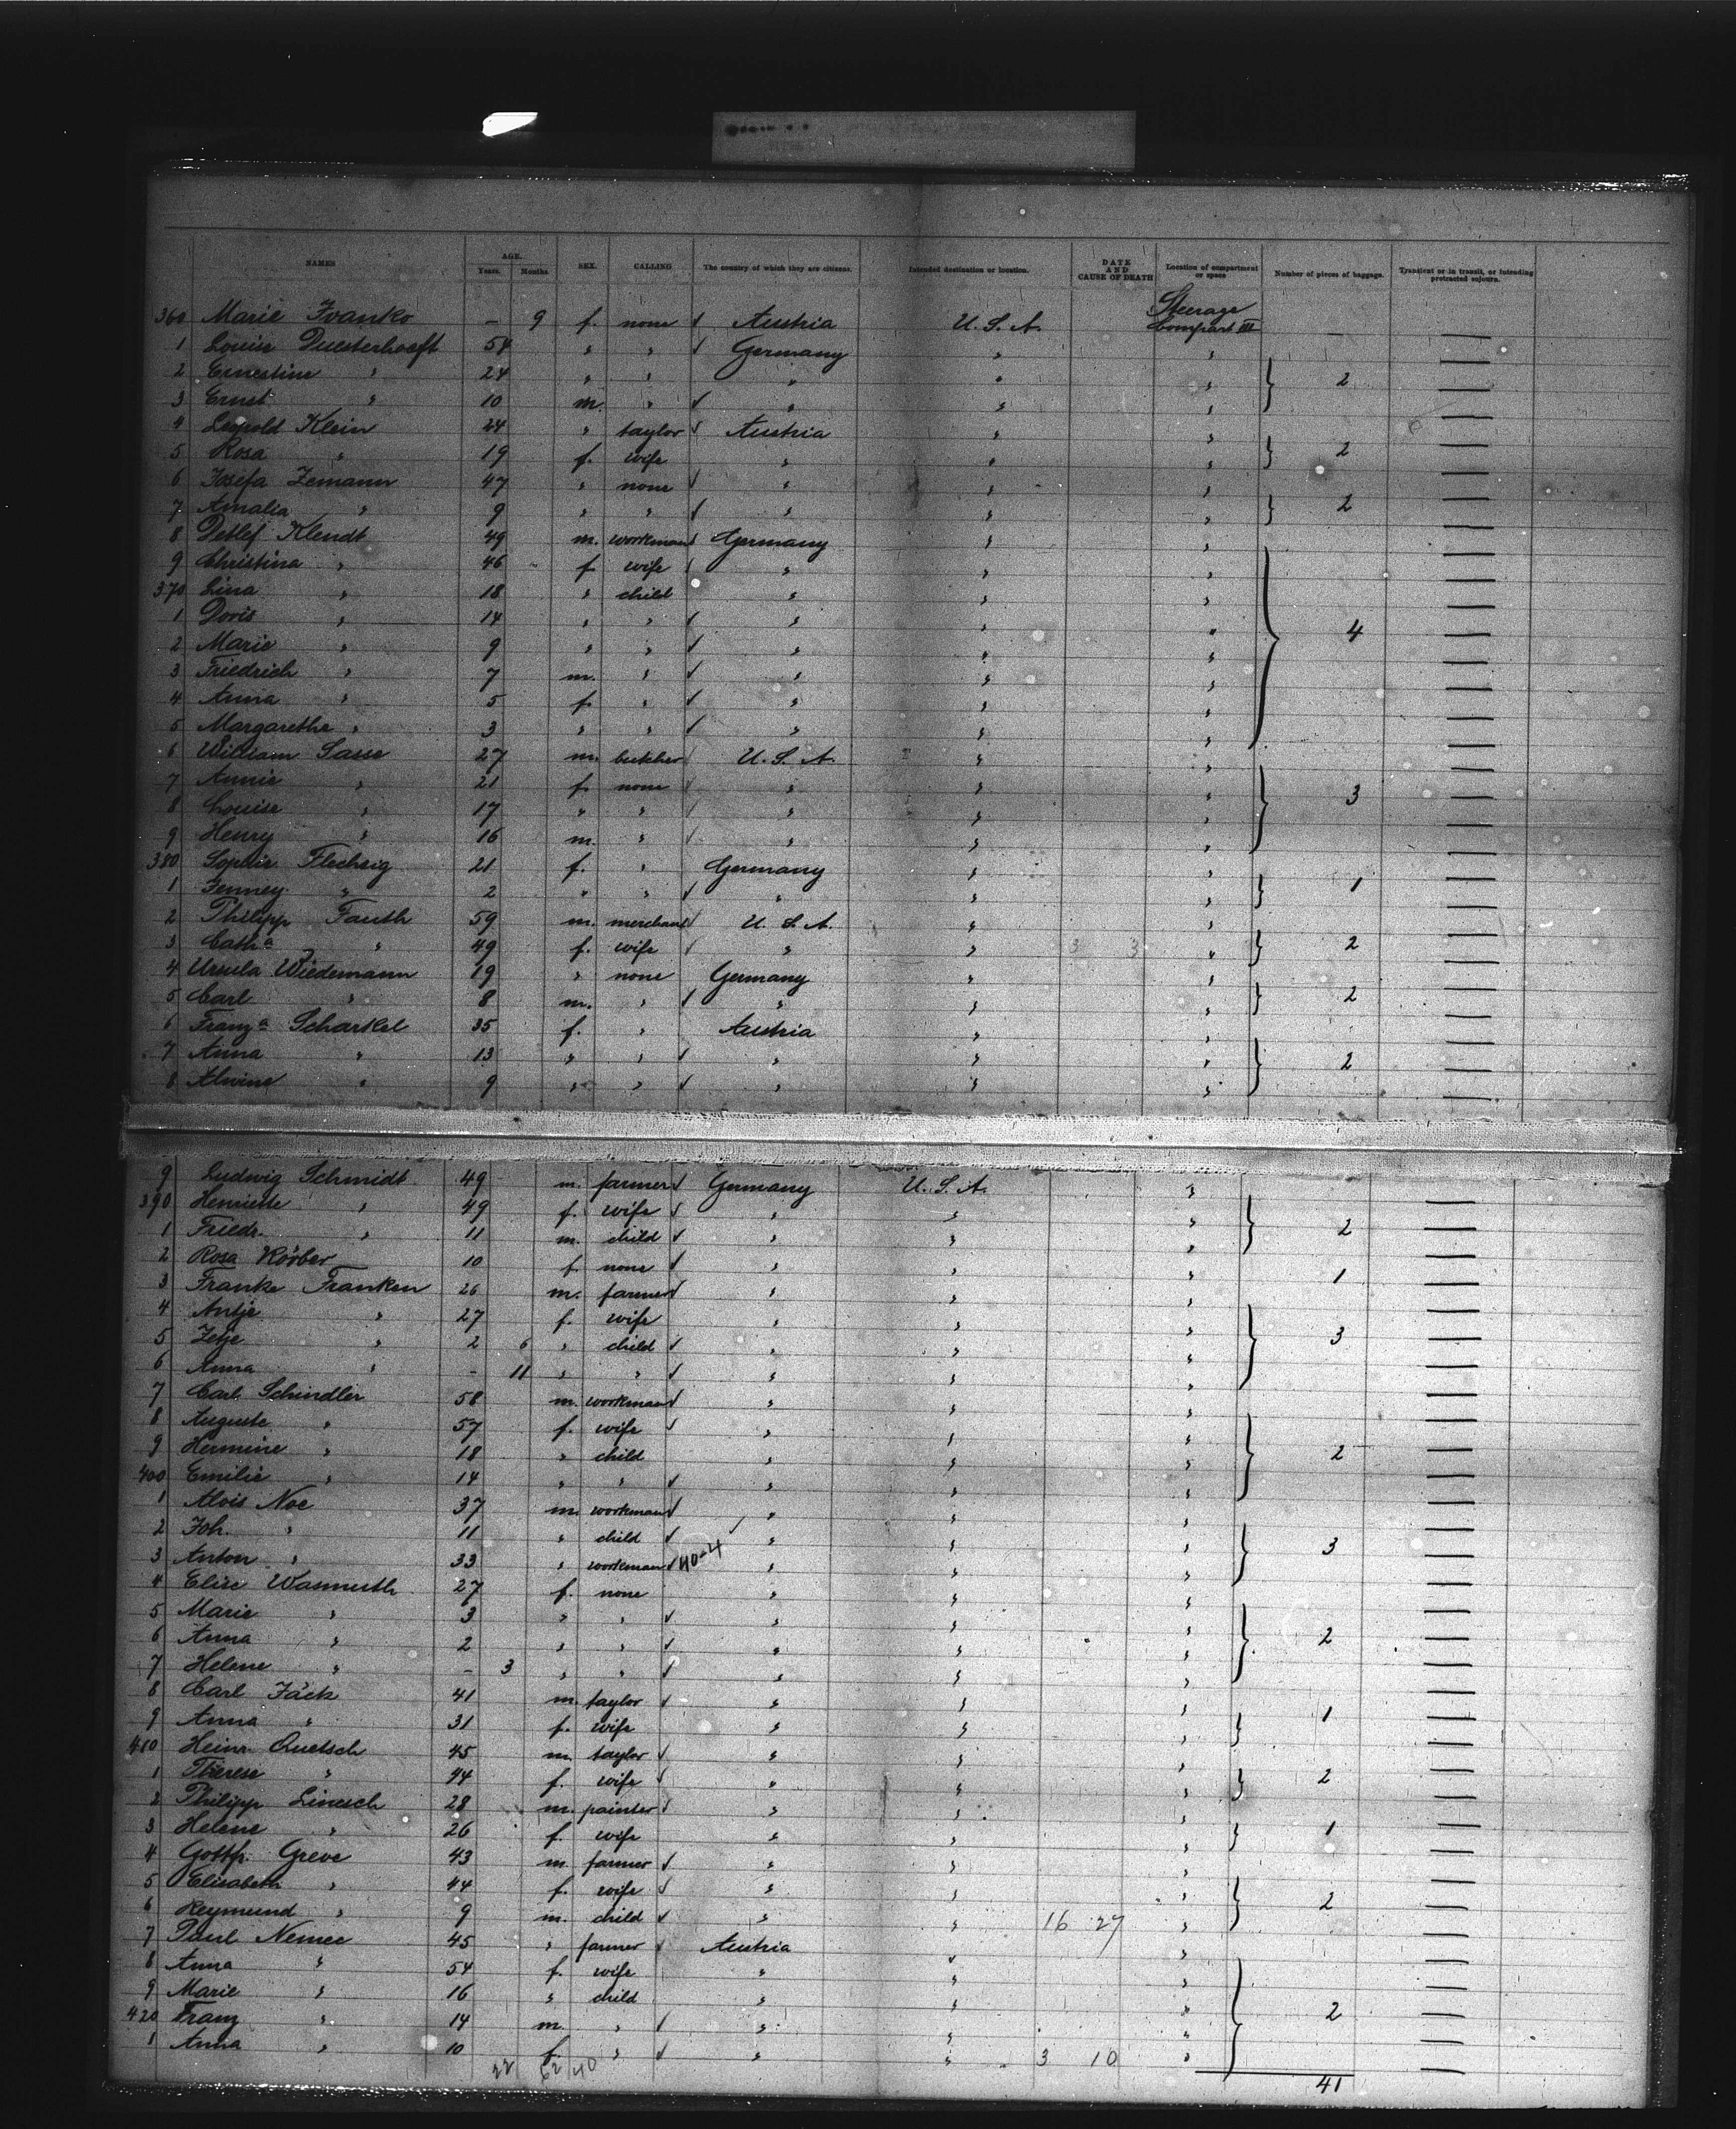 NAMES AGE. Years. Months. SEX. CALLING The country of which they are citizens. Intended destination or location. DATE AND CAUSE OF DEATH Location of compartment or space Number of pieces of baggage. Transient or in transit, or intending protracted sojourn.
360 Marie Ivanko — 9 f. none Austria U. S. A. Steerage Compart III —
1 Louise Duesterhoeft 54 " " Germany " " —
2 Ernestine " 24 " " " " " 2 —
3 Ernst " 10 m. " " " " —
4 Leopold Klein 24 " taylor Austria " " —
5 Rosa " 19 f. wife " " " 2 —
6 Josefa Zemann 47 " none " " " —
7 Amalia " 9 " " " " " 2 —
8 Detlef Klendt 49 m. workman Germany " " —
9 Christina " 46 f wife " " " —
370 Lina " 18 " child " " " —
1 Doris " 14 " " " " " 4 —
2 Marie " 9 " " " " " —
3 Friedrich " 7 m. " " " " —
4 Anna " 5 f. " " " " —
5 Margarethe " 3 " " " " " —
6 William Sasse 27 m. butcher U. S. A. " " —
7 Annie " 21 f. none " " " 3 —
8 Louise " 17 " " " " " —
9 Henry " 16 m. " " " " —
380 Sophie Flechsig 21 f. " Germany " " —
1 Jenney " 2 " " " " " 1 —
2 Philipp Fauth 59 m. merchant U. S. A. " " —
3 Cath.a " 49 f. wife " " 3 3 " 2 —
4 Ursula Wiedemann 19 " none Germany " " —
5 Carl " 8 m. " " " " 2 —
6 Franz.a Scharkel 35 f. " Austria " " —
7 Anna " 13 " " " " " 2 —
8 Alwine " 9 " " " " " —
9 Ludwig Schmidt 49 m. farmer Germany U. S. A. " —
390 Henriette " 49 f. wife " " " 2 —
1 Friedr. " 11 m. child " " " —
2 Rosa Körber 10 f none " " " 1 —
3 Franke Franken 26 m. farmer " " " —
4 Antje " 27 f. wife " " " 3 —
5 Zetje " 2 6 " child " " " —
6 Anna " - 11 " " " " " —
7 Carl Schindler 58 m. workman " " " —
8 Auguste " 57 f. wife " " " —
9 Hermine " 18 " child " " " 2 —
400 Emilie " 14 " " " " " —
1 Alois Noe 37 m. workman " " " —
2 Joh. " 11 " child " " " 3 —
3 Anton " 33 " workman 40-4 " " " —
4 Elise Wasmuth 27 f. none " " " —
5 Marie " 3 " " " " " 2 —
6 Anna " 2 " " " " " —
7 Helene " - 3 " " " " " —
8 Carl Jäck 41 m. taylor " " " 1 —
9 Anna " 31 f. wife " " " —
410 Heinr. Quetsch 45 m. taylor " " " —
1 Therese " 44 f. wife " " " 2 —
2 Philipp Linesch 28 m. painter " " " —
3 Helene " 26 f. wife " " " 1 —
4 Gottfr. Greve 43 m. farmer " " " —
5 Elisabeth " 44 f. wife " " " 2 —
6 Reymund " 9 m. child " " 16 27 " —
7 Paul Nemec 45 " farmer Austria " " —
8 Anna " 54 f. wife " " " —
9 Marie " 16 " child " " " 2 —
420 Franz " 14 m. " " " " —
1 Anna " 10 f. " " " 3 10 " —
22 62 40 41